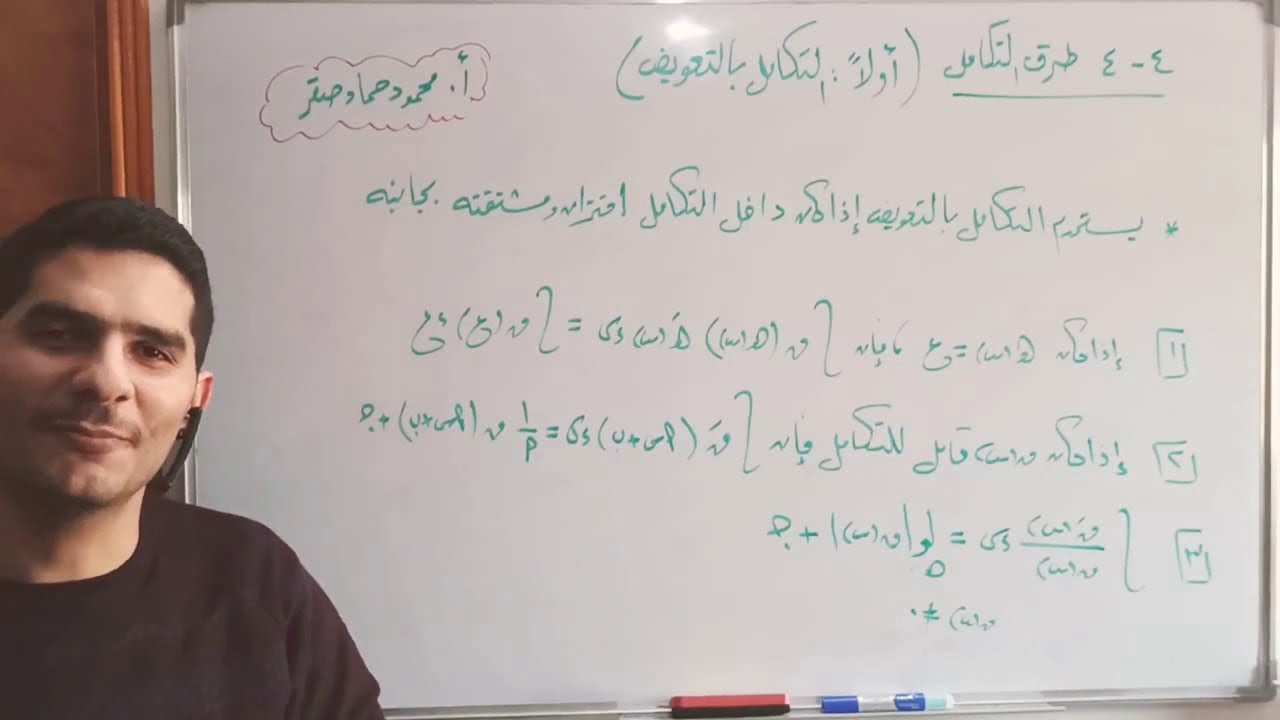 ٤-٤ طرق التكامل (أولاً: التكامل بالتعويض)
أ. محمود حماد صقر
* يستخدم التكامل بالتعويض إذا كان داخل التكامل اقتران ومشتقته بجانبه
[١] إذا كان هـ(س) = ع ، فإن ∫ ق(هـ(س)) هـَ(س) ءس = ∫ ق(ع) ءع
[٢] إذا كان ق(س) قابل للتكامل فإن ∫ قَ(أس+ب) ءس = ١/أ ق(أس+ب) + جـ
[٣] ∫ قَ(س)/ق(س) ءس = لو هـ |ق(س)| + جـ
ق(س) ≠ ٠